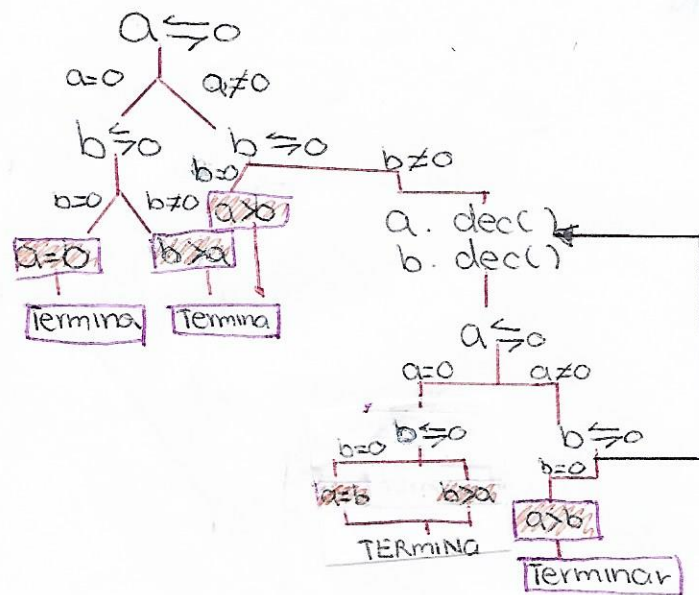 a ⇆ 0
a=0 a≠0
b ⇆ 0 b ⇆ 0
b=0 b≠0 b=0 b≠0
a=0 b>a a>0
Termina Termina
a. dec()
b. dec()
a ⇆ 0
a=0 a≠0
b ⇆ 0 b ⇆ 0
b=0 b=0
a=b b>a a>b
TERMINA Terminar